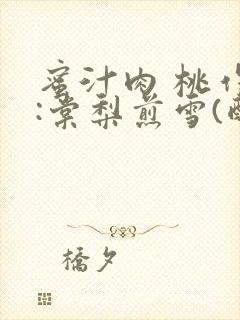 蜜汁肉桃作
:棠梨煎雪(
橘夕